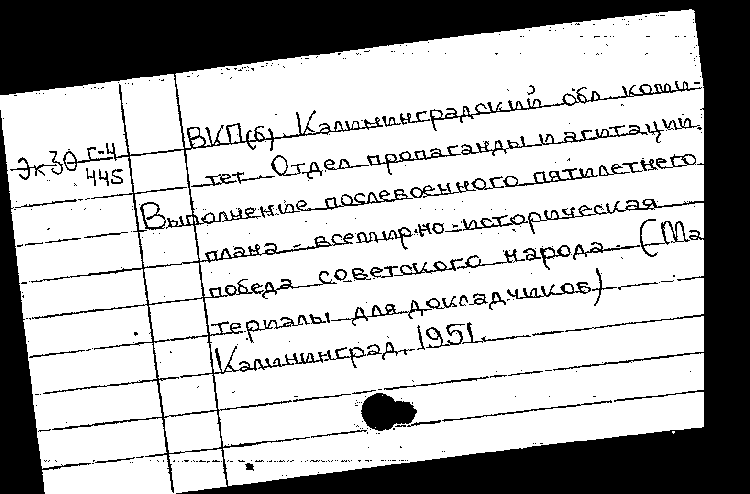 Эк30 Г-4/445
ВКП(б). Калининградский обл. коми-
тет. Отдел пропаганды и агитации.
Выполнение послевоенного пятилетнего
плана - всемирно-историческая
победа советского народа. (Ма
териалы для докладчиков).
Калининград, 1951.